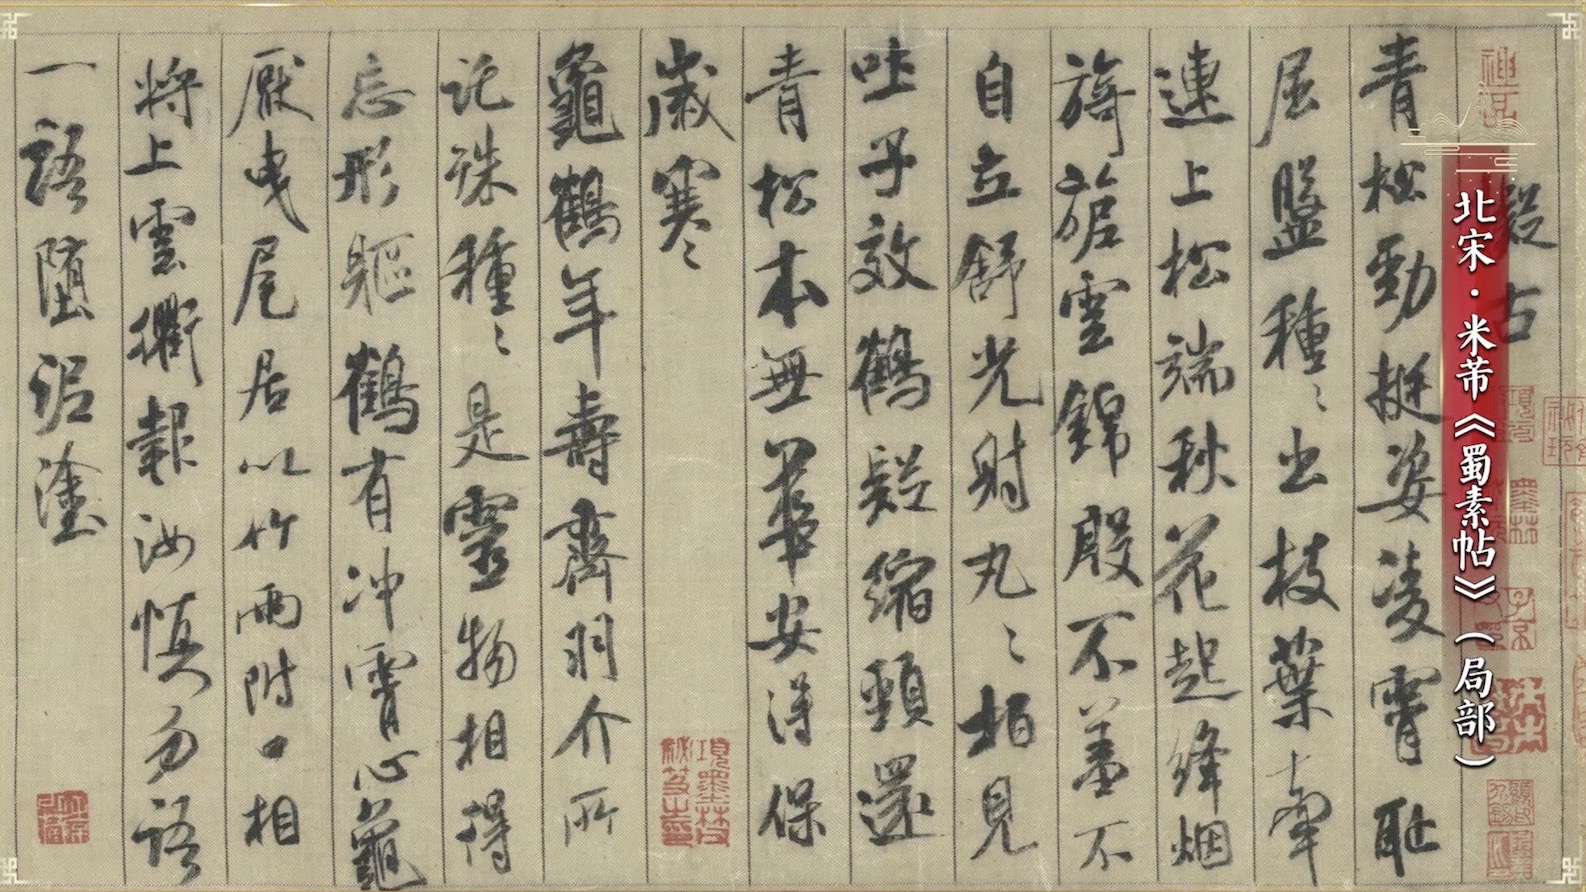 北宋·米芾《蜀素帖》（局部）
擬古
青松勁挺姿凌霄恥
屈盤種〻出枝葉牽
連上松端秋花起絳烟
旖旎雲錦殷不羞不
自立舒光射丸〻柏見
吐子效鶴疑縮頸還
青松本無華安得保
歲寒
龜鶴年壽齊羽介所
託殊種〻是靈物相得
忘形軀鶴有冲霄心龜
厭曳尾居以竹兩附口相
將上雲衢報汝慎勿語
一語墮泥塗